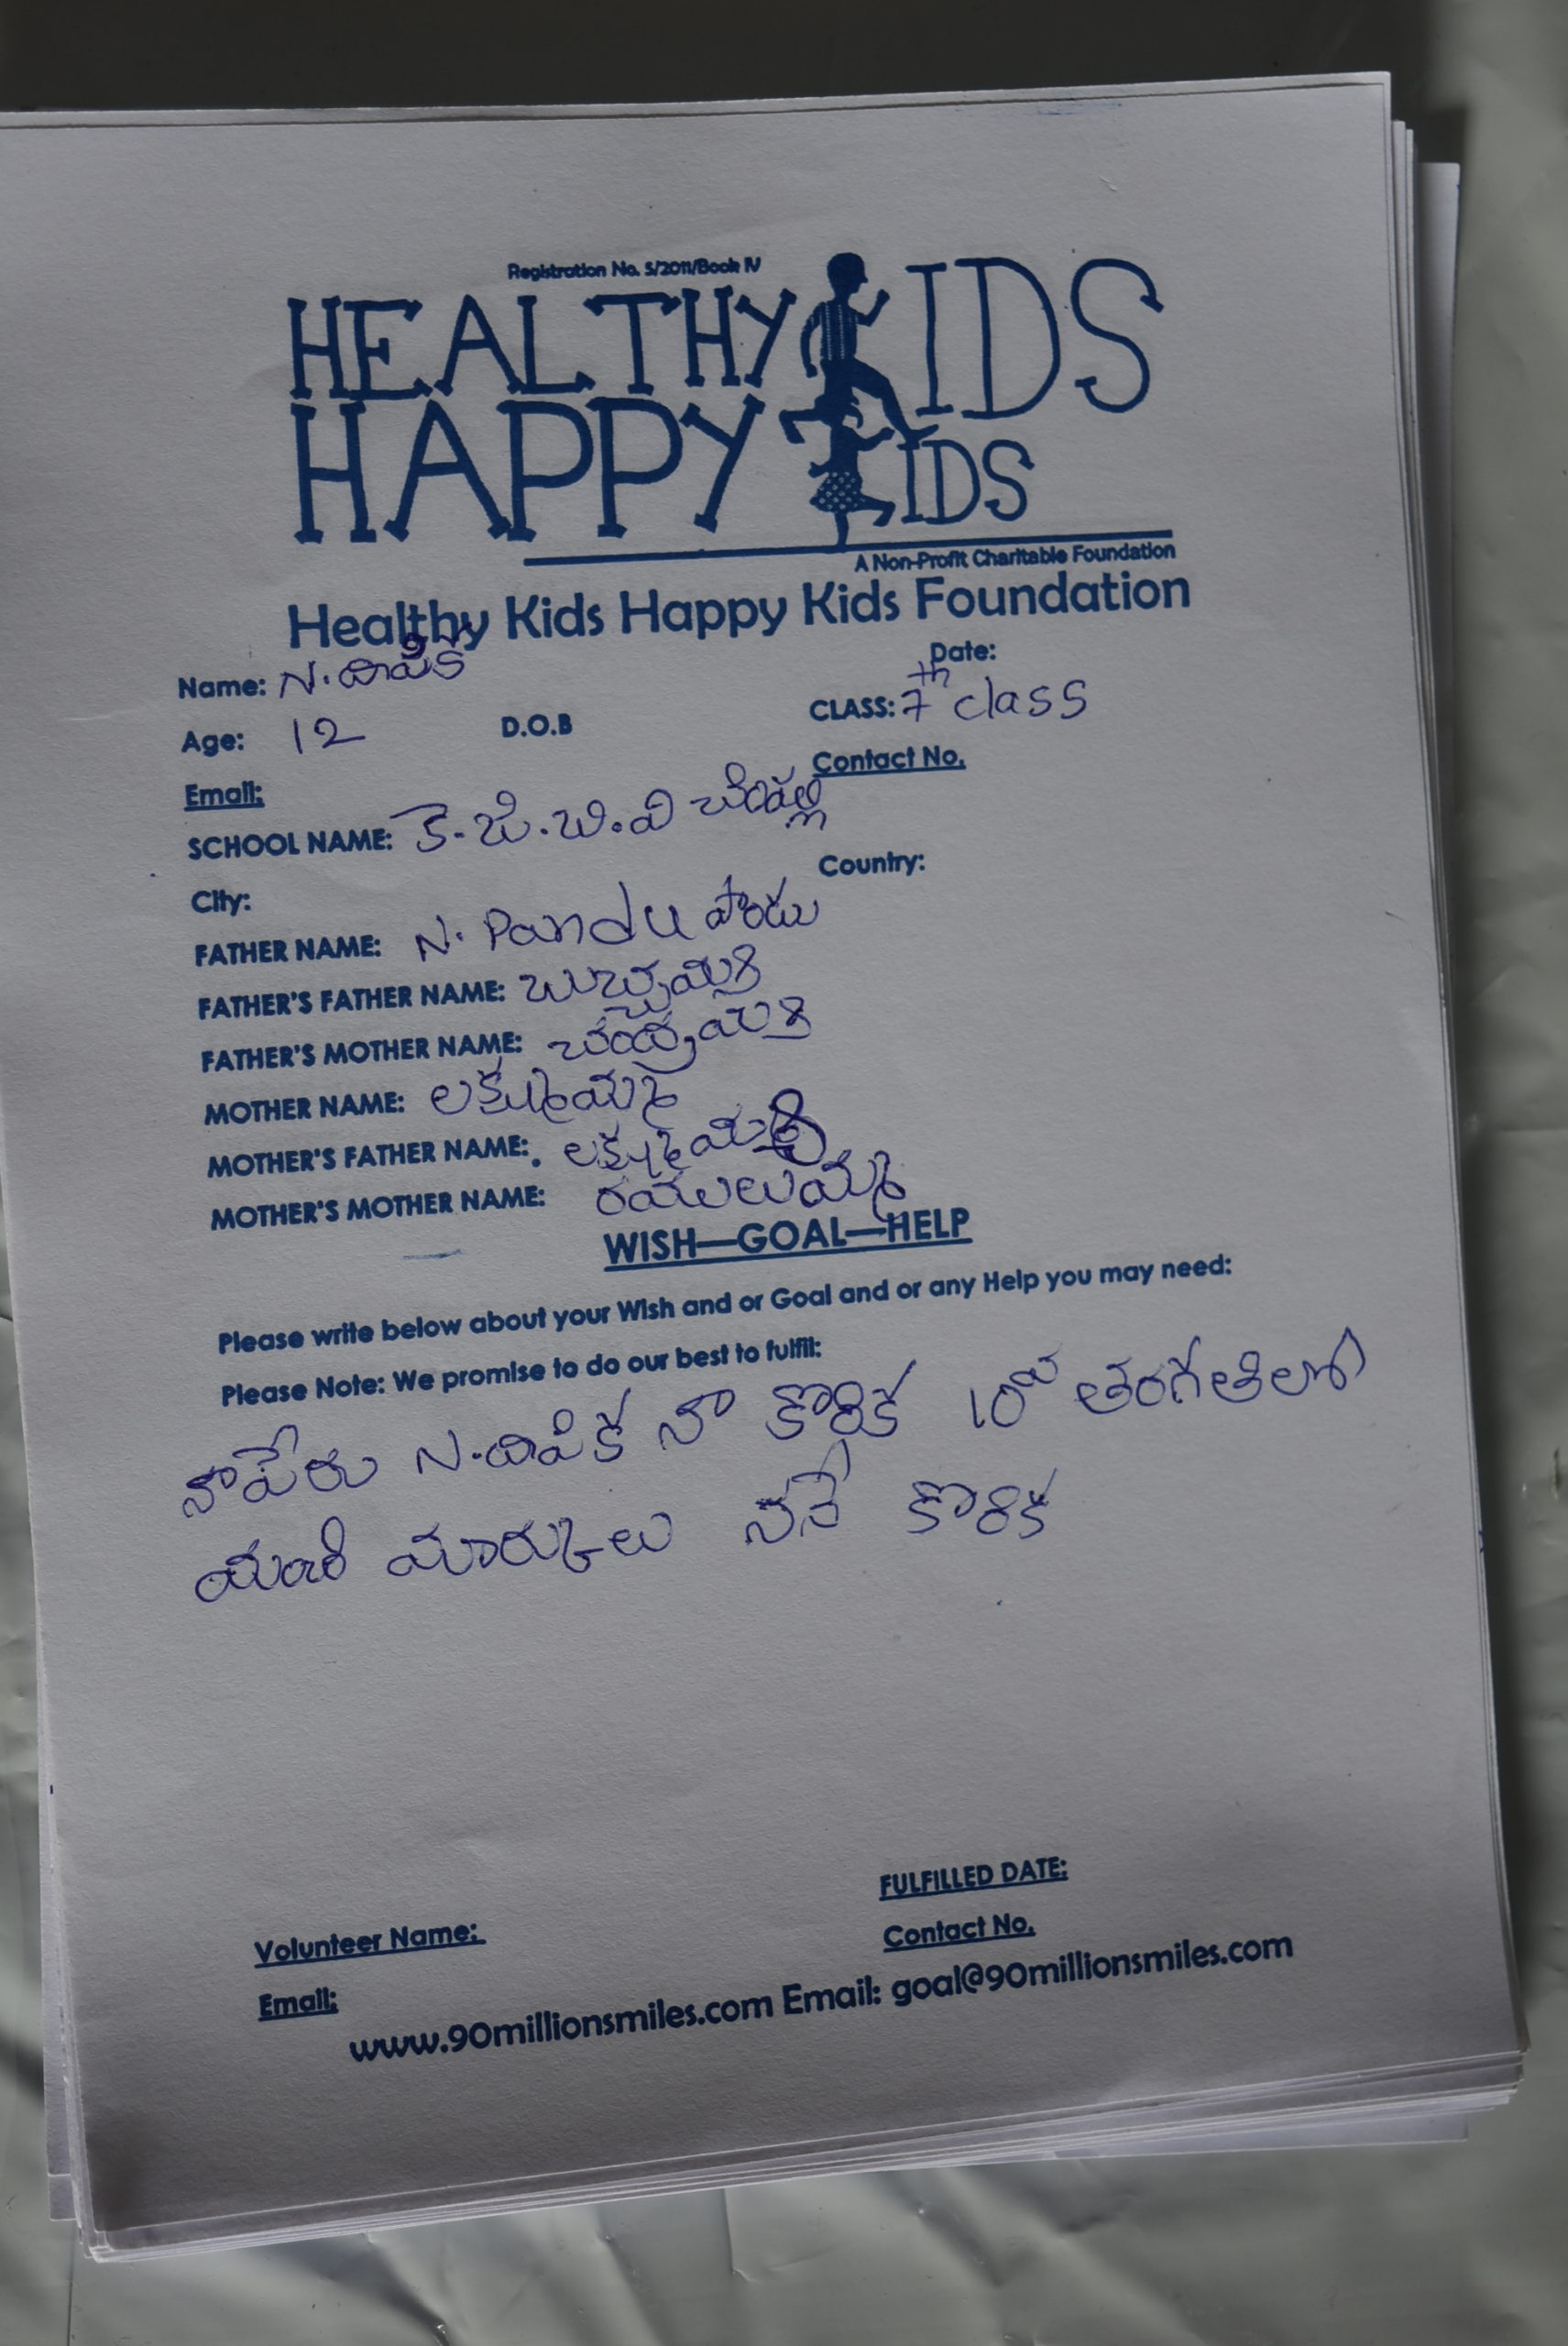 Registration No. 5/2011/Book IV
HEALTHY KIDS
HAPPY KIDS
A Non-Profit Charitable Foundation
Healthy Kids Happy Kids Foundation
Name: N. దిపిక Date:
Age: 12 D.O.B CLASS: 7th class
Email: Contact No.
SCHOOL NAME: కె. జి. బి. వి
City: Country:
FATHER NAME: N. Pandu పాండు
FATHER'S FATHER NAME:
FATHER'S MOTHER NAME:
MOTHER NAME: లక్ష్మమ్మ
MOTHER'S FATHER NAME:
MOTHER'S MOTHER NAME: రములుమ్మ
WISH—GOAL—HELP
Please write below about your Wish and or Goal and or any Help you may need:
Please Note: We promise to do our best to fulfil:
నాపేరు N. దిపిక నా కోరిక 10వ తరగతిలో
మంచి మార్కులు కొరిక
FULFILLED DATE:
Volunteer Name: Contact No.
Email:
www.90millionsmiles.com Email: goal@90millionsmiles.com